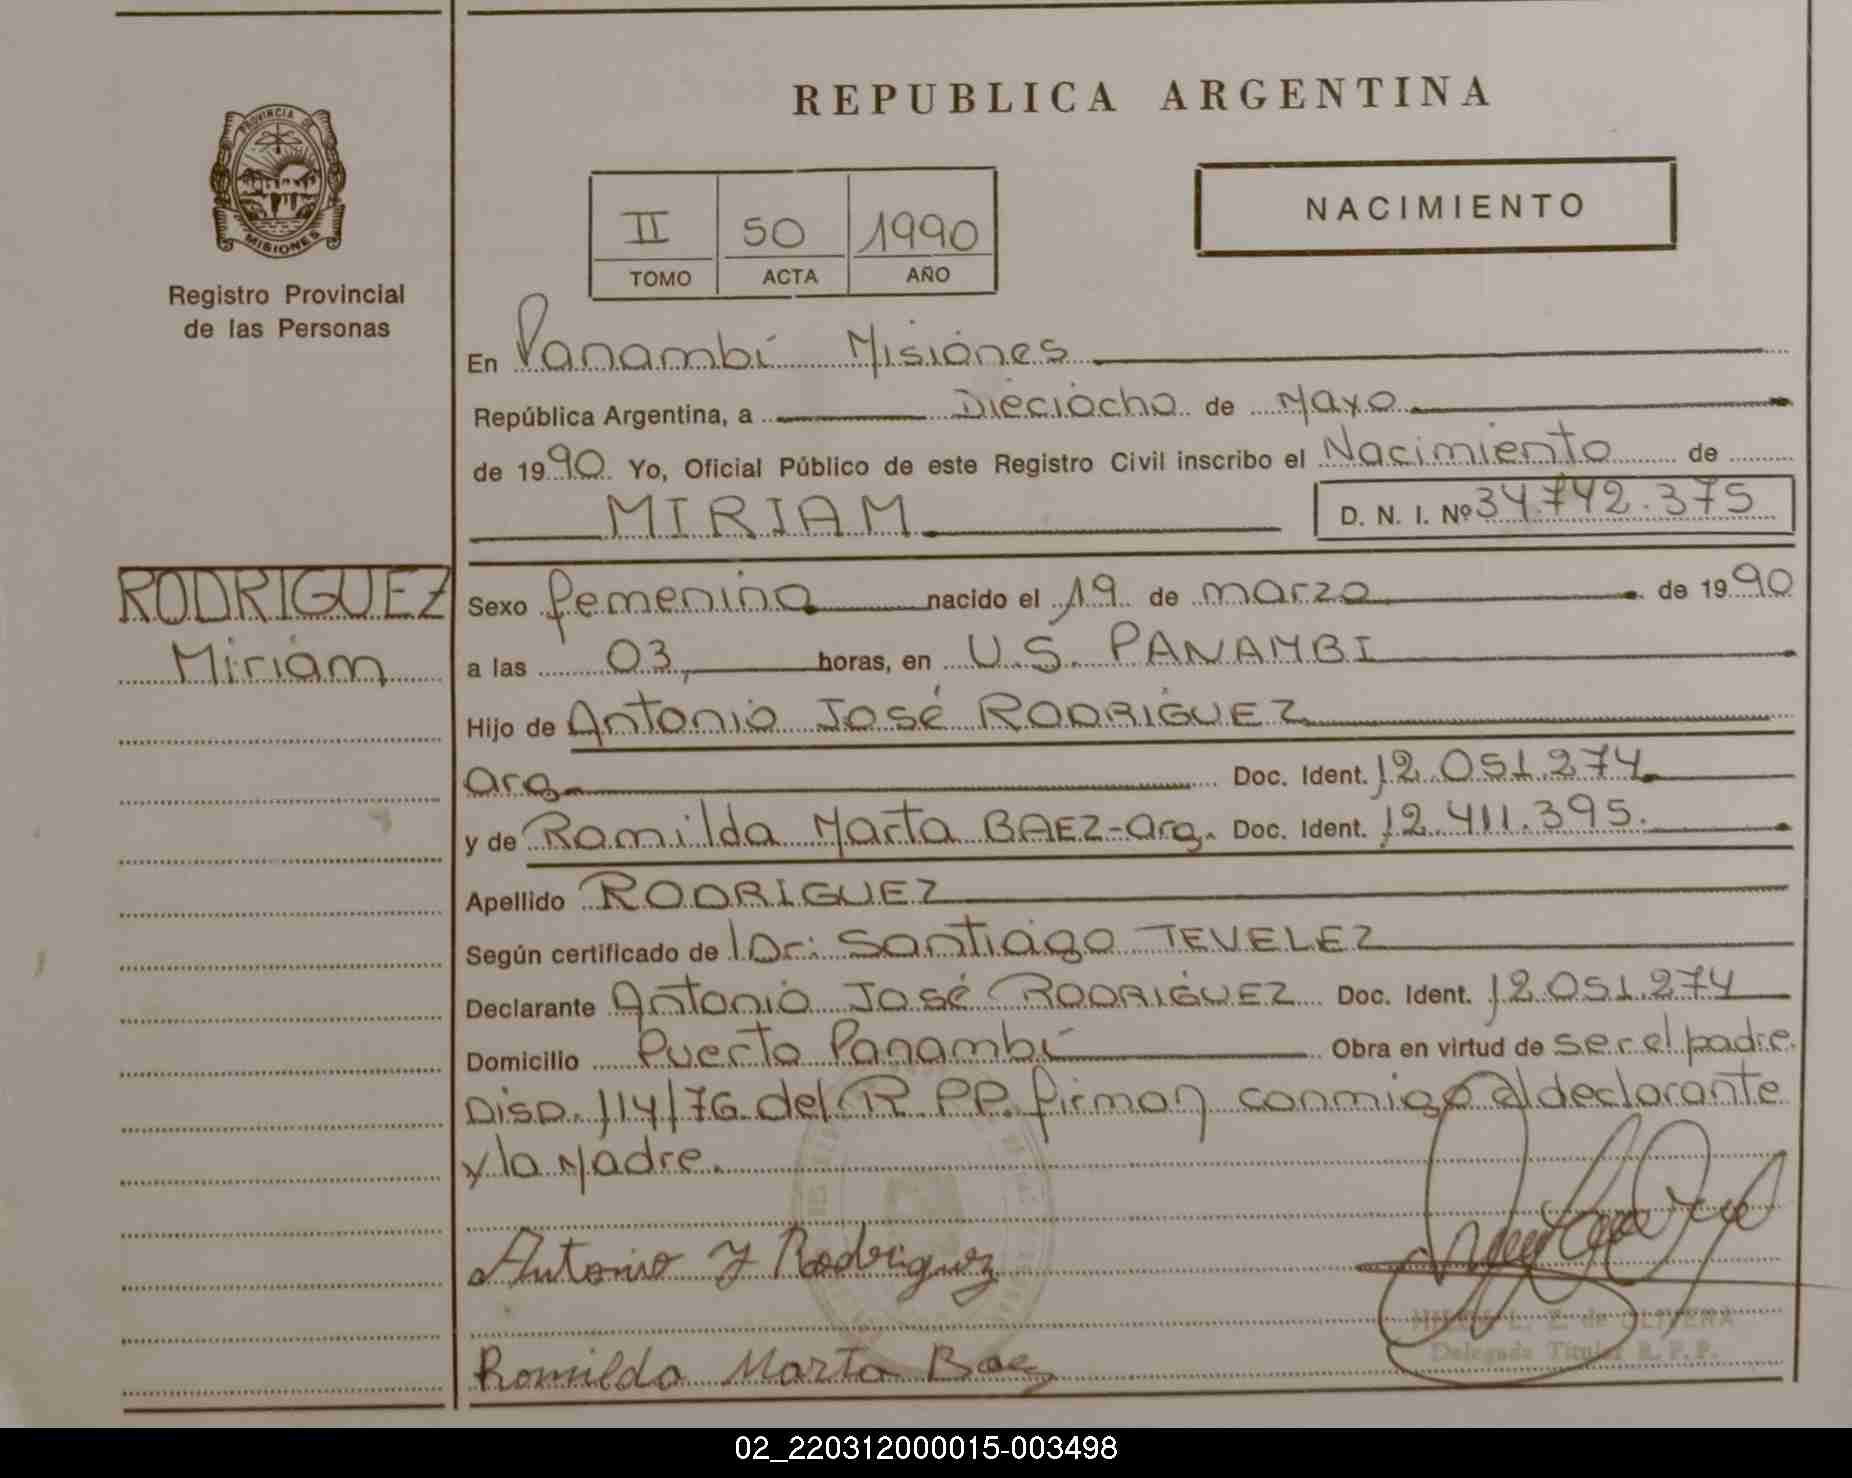 REPUBLICA ARGENTINA
PROVINCIA DE
MISIONES
Registro Provincial
de las Personas
II 50 1990
TOMO ACTA AÑO
NACIMIENTO
En Panambí Misiones
República Argentina, a Dieciocho de Mayo
de 1990 Yo, Oficial Público de este Registro Civil inscribo el Nacimiento de
MIRIAM D. N. I. Nº 34.742.375
RODRIGUEZ
Miriam
Sexo femenino nacido el 19 de marzo de 1990
a las 03, horas, en U.S. PANAMBI
Hijo de Antonio José RODRIGUEZ
arg. Doc. Ident. 12.051.274
y de Romilda Marta BAEZ-arg. Doc. Ident. 12.411.395.
Apellido RODRIGUEZ
Según certificado de Dr: Santiago TEVELEZ
Declarante Antonio José RODRIGUEZ Doc. Ident. 12.051.274
Domicilio Puerto Panambí Obra en virtud de ser el padre
Disp. 114/76 del R.PP. firman conmigo el declarante
y la Madre.
Antonio J Rodriguez
L. E. de OLIVERA
Delegada Titular R. P. P.
Romilda Marta Baez
02_220312000015-003498